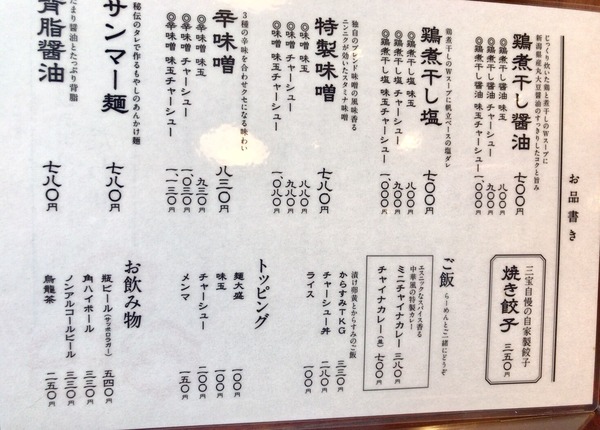 お品書き
じっくり炊いた鶏と煮干しのWスープに
新潟県産丸大豆醤油のすっきりしたコクと旨み
鶏煮干し醤油 七〇〇円
◎鶏煮干し醤油 味玉 八〇〇円
◎鶏煮干し醤油 チャーシュー 九〇〇円
◎鶏煮干し醤油 味玉チャーシュー 一、〇〇〇円
鶏煮干しのWスープに帆立ベースの塩ダレ
鶏煮干し塩 七〇〇円
◎鶏煮干し塩 味玉 八〇〇円
◎鶏煮干し塩 チャーシュー 九〇〇円
◎鶏煮干し塩 味玉チャーシュー 一、〇〇〇円
独自のブレンド味噌の風味香る
ニンニクが効いたスタミナ味噌
特製味噌 七八〇円
◎味噌 味玉 八八〇円
◎味噌 チャーシュー 九八〇円
◎味噌 味玉チャーシュー 一、〇八〇円
3種の辛味を合わせクセになる味わい
辛味噌 八三〇円
◎辛味噌 味玉 九三〇円
◎辛味噌 チャーシュー 一、〇三〇円
◎辛味噌 味玉チャーシュー 一、一三〇円
秘伝のタレで作るもやしのあんかけ麺
サンマー麺 七八〇円
たまり醤油とたっぷり背脂
背脂醤油 七八〇円
三宝自慢の自家製餃子
焼き餃子 三五〇円
ご飯 らーめんと一緒にどうぞ
エスニックなスパイス香る
中華風の特製カレー
ミニチャイナカレー 三八〇円
チャイナカレー(並) 七〇〇円
漬け卵黄とからすみのご飯
からすみTKG 三三〇円
チャーシュー丼 二八〇円
ライス 一〇〇円
トッピング
麺大盛 一〇〇円
味玉 一〇〇円
チャーシュー 二〇〇円
メンマ 一五〇円
お飲み物
瓶ビール(サッポロラガー) 五四〇円
角ハイボール 三三〇円
ノンアルコールビール 三三〇円
烏龍茶 二五〇円